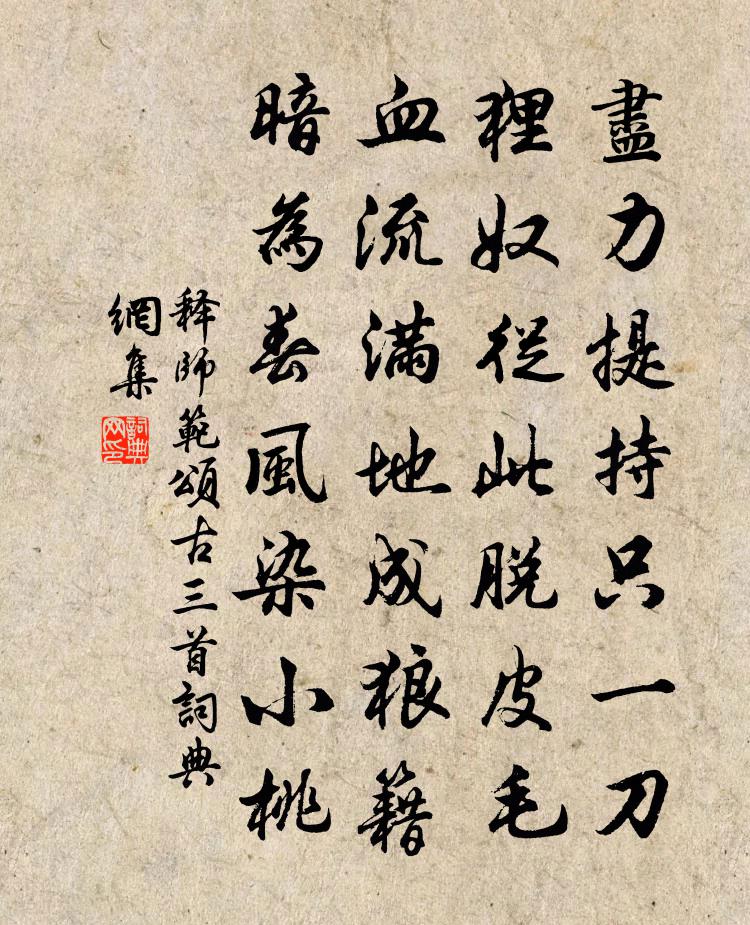 盡力提持只一刀
狸奴從此脱皮毛
血流滿地成狼籍
暗為春風染小桃
释師範頌古三首詞典
網集
詞典
网印